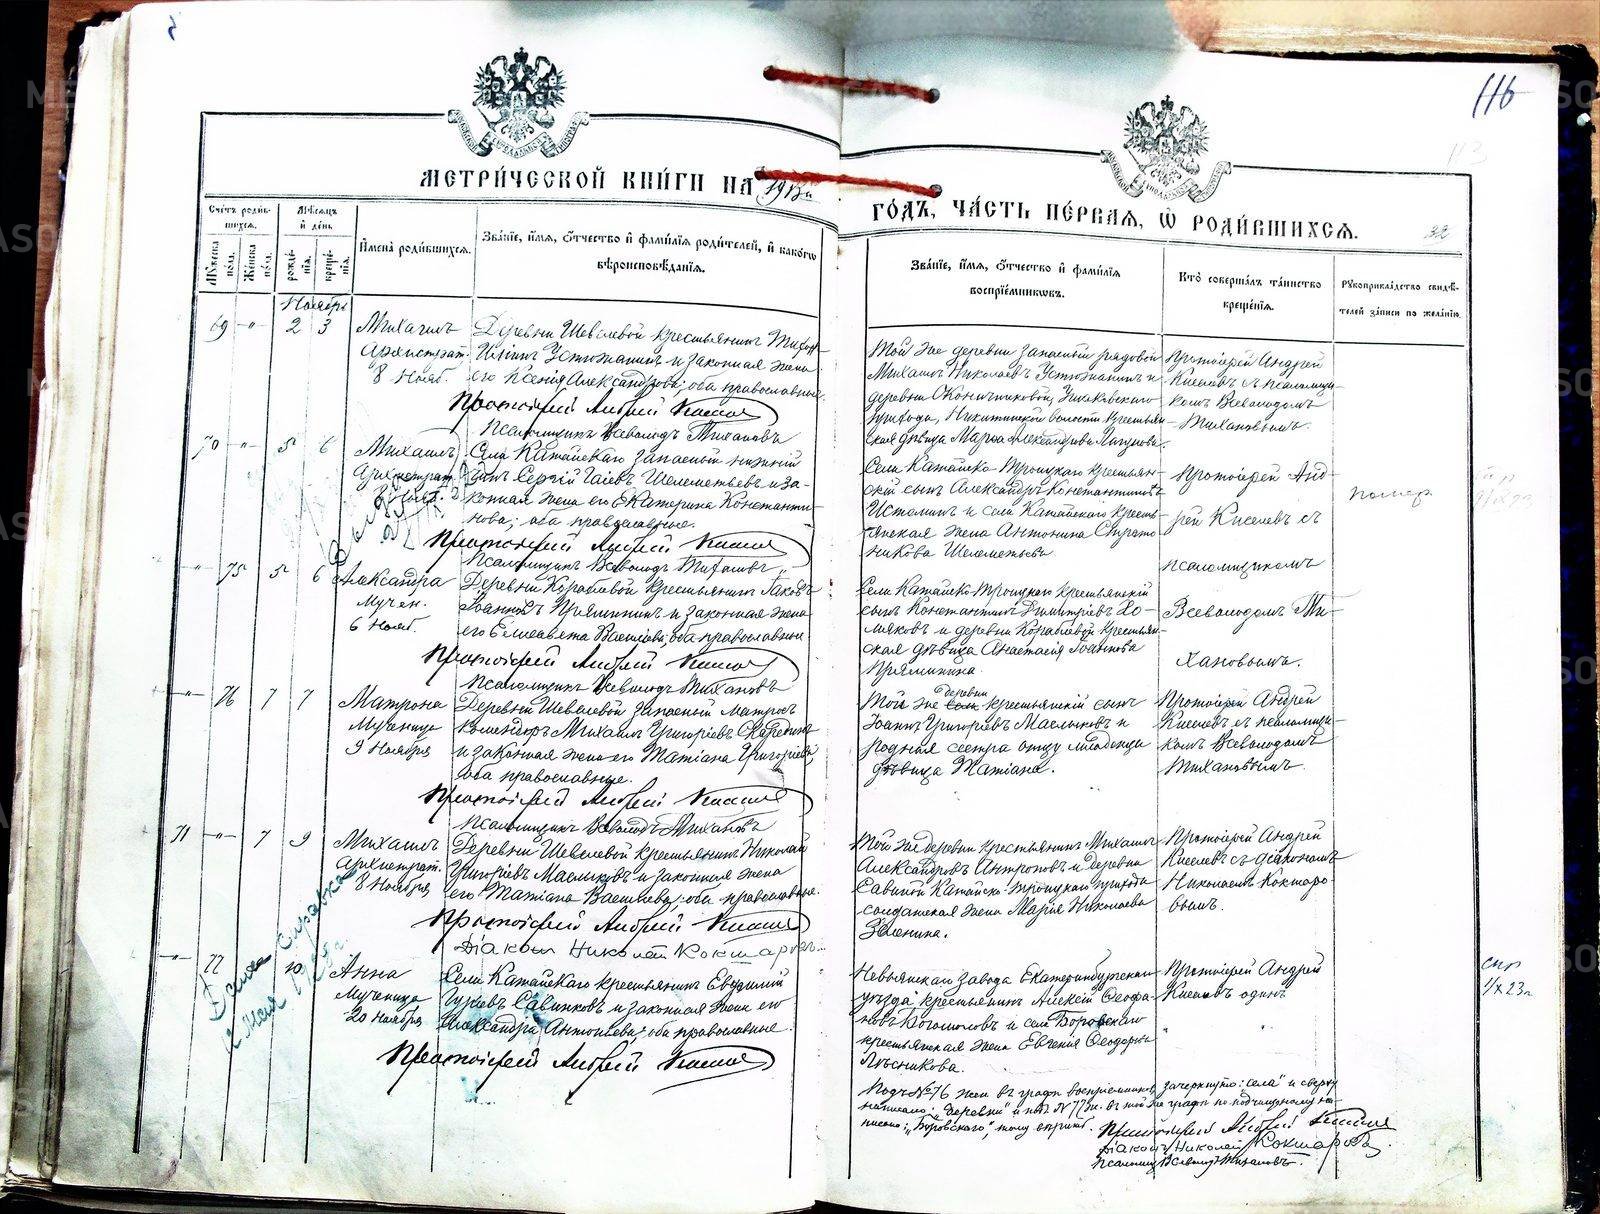 116
113
МЕТРИ́ЧЕСКОЙ КНИ́ГИ НА 1913й
ГО́ДЪ, ЧА́СТЬ ПЕ́РВАЯ, Ѡ РОДИ́ВШИХСЯ.
32
Сче́тъ роди́в-
шихся.
Мѣ́сяцъ
и де́нь
Мꙋ́жеска по́ла.
Же́нска по́ла.
рожде́-
нїя.
креще́-
нїя.
И҆мена̀ роди́вшихся.
Зва́нїе, и҆́мя, ѻ҆́тчество и҆ фамилїя роди́телей, и҆ како́гѡ
вѣроисповѣ́данїя.
Зва́нїе, и҆́мя, ѻ҆́тчество и҆ фами́лїя
воспрїе́мникѡвъ.
Кто̀ соверша́лъ та́инство
креще́нїя.
Рꙋкоприкла́дство свидѣ́-
телей за́писи по жела́нїю.
Ноябрь
69 -"- 2 3
Михаилъ
Архистрат.
8 Нояб.
Деревни Шевелевой крестьянинъ
Устюжанинъ и законная жена
его Ксенія Александрова; оба православные.
Протоіерей Андрей Киселев
Псаломщикъ Всеволодъ Тихановъ
Той же деревни запасный рядовой
Михаилъ Николаевъ Устюжанинъ и
деревни
прихода, Никитинской волости крестьян-
ская дѣвица Марѳа Александрова
Протоіерей Андрей
Киселевъ съ псаломщи-
комъ Всеволодомъ
Тихановымъ.
70 -"- 5 6
Михаилъ
Архистрат.
8 Нояб.
Села Катайскаго запасный нижній
чинъ Сергій Шелеметьевъ и за-
конная жена его Екатерина Константи-
нова; оба православные.
Протоіерей Андрей Киселев
Псаломщикъ Всеволодъ Тихановъ
Села Катайско-Троицкаго крестьян-
скій сынъ Александръ Константиновъ
Истоминъ и села Катайскаго кресть-
янская жена Антонина
Шелеметьева
Протоіерей Анд-
рей Киселевъ съ
псаломщикомъ
помер
-"- 75 5 6
Александра
Мучен.
6 Нояб.
Деревни Кораблевой крестьянинъ Іаковъ
Іоанновъ Пряминъ и законная жена
его Елисавета Васильева; оба православные
Протоіерей Андрей Киселев
Псаломщикъ Всеволодъ Тихановъ
Села Катайско-Троицкаго крестьянскій
сынъ Константинъ Димитріевъ Хо-
мяковъ и деревни Кораблевой крестьян-
ская дѣвица Анастасія Іоаннова
Всеволодомъ Ти-
хановымъ.
-"- 76 7 7
Матрона
Мученице
9 Ноября
Деревни Шевелевой запасный матросъ
Михаилъ Григоріевъ
и законная жена его Татіана Григоріева;
оба православные.
Протоіерей Андрей Киселев
Псаломщикъ Всеволодъ Тихановъ
деревни
Той же села крестьянскій сынъ
Іоаннъ Григоріевъ Маслыковъ и
родная сестра отцу младенца
дѣвица Татіана.
Протоіерей Андрей
Киселевъ съ псаломщи-
комъ Всеволодомъ
Тихановымъ.
71 -"- 7 9
Михаилъ
Архистрат.
8 Ноября
Деревни Шевелевой крестьянинъ Николай
Григоріевъ Маслыковъ и законная жена
его Татіана Васильева; оба православные.
Протоіерей Андрей Киселев
Діаконъ Николай Кокшаровъ
Той же деревни крестьянинъ Михаилъ
Александровъ Антроповъ и деревни
Савиной Катайско-Троицкаго прихода
солдатская жена Марія Николаева
Зеленина.
Протоіерей Андрей
Киселевъ съ діакономъ
Николаемъ Кокшаро-
вымъ.
-"- 77 10
Анна
Мученица
20 Ноября
Села Катайскаго крестьянинъ Евѳимій
Гурьевъ Савинковъ и законная жена его
Александра Антоніева; оба православные.
Протоіерей Андрей Киселев
Невьянскаго завода Екатеринбургскаго
уѣзда крестьянинъ Алексій Ѳеофа-
новъ Богомоловъ и села Боровскаго
крестьянская жена Евгенія Ѳеодорова
Лѣсникова.
Протоіерей Андрей
Киселевъ одинъ
спр
1/X 23г.
Подъ №76 жен. въ графѣ воспріемниковъ зачеркнуто: "села" и сверху
написано: "деревни" и подъ №77 ж. въ той же графѣ по подчищенному на-
писано: "Боровскаго",
Протоіерей Андрей Киселев
Діаконъ Николай Кокшаровъ.
Псаломщ. Всеволодъ Тихановъ.